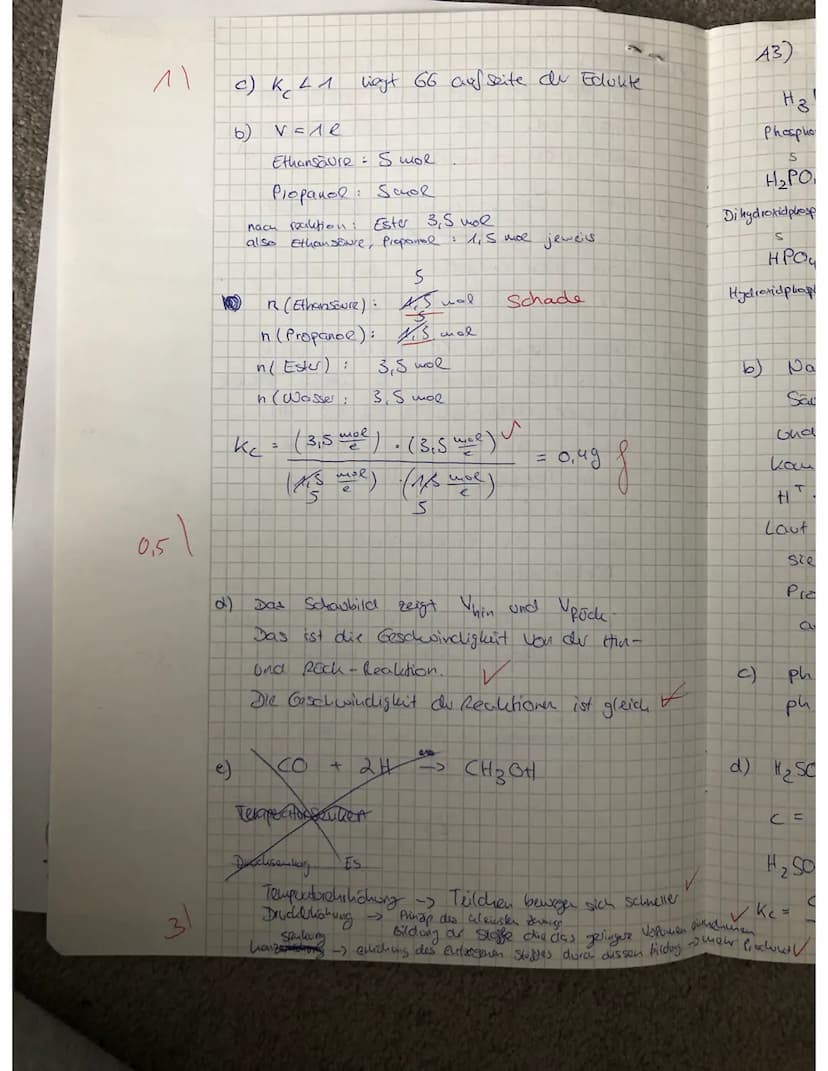 1)
c) Kc < 1 liegt GG auf Seite der Edukte
b) V = 1 l
Ethansäure : 5 mol
Propanol : 5 mol
nach reaktion : Ester 3,5 mol
also Ethansäure, Propanol : 1,5 mol jeweils
5
n (Ethansäure) : 1,5 mol Schade
5
n (Propanol) : 1,5 mol
n( Ester) : 3,5 mol
n (Wasser : 3,5 mol
Kc = (3,5 mol/l) · (3,5 mol/l) / (1,5 mol/l) · (1,5 mol/l) = 0,49 f
5 5
0,5
d) Das Schaubild zeigt Vhin und Vrück.
Das ist die Geschwindigkeit von der Hin-
und Rück-Reaktion.
Die Geschwindigkeit der Reaktionen ist gleich
e) CO + 2H -> CH3OH
Es
Temperaturerhöhung -> Teilchen bewegen sich schneller
Druckerhöhung -> Prinzip des kleinsten Zwangs
Bildung der Stoffe die das geringere Volumen einnehmen
3
senkung
-> erhöhung des entzogenen Stoffes durch dessen bildung -> mehr Produkt
A3)
H3
Phospho
s
H2PO
Dihydroxidphosp
s
HPO4
Hydroxidphosp
b) Na
Säu
und
kann
H+
Laut
sie
Pro
a
c) ph
ph
d) H2SO
c =
H2SO
Kc =